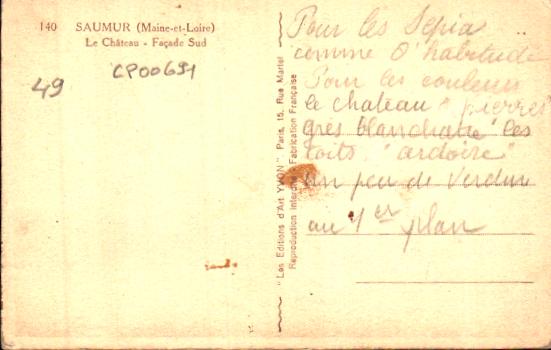 140 SAUMUR (Maine-et-Loire)
Le Château - Façade Sud
49
CP00691
"Les Editions d'Art YVON" Paris, 15, Rue Martel
Reproduction Interdite Fabrication Française
Pour les Sepia
comme d'habitude
Pour les couleurs
le chateau "pierres
grès blanchade" les
toits "ardoise"
un peu de verdure
au 1er plan